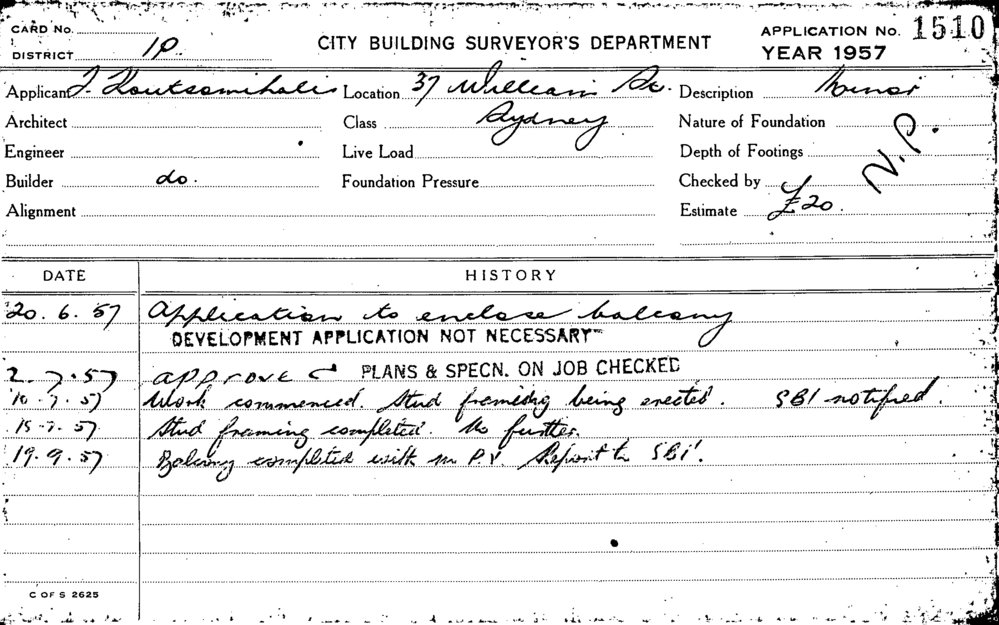 CARD No.
DISTRICT 1P
CITY BUILDING SURVEYOR'S DEPARTMENT
APPLICATION No. 1510
YEAR 1957
Applicant J. Koutsomihalis Location 37 William St. Description Minor
Architect Class Sydney Nature of Foundation
Engineer Live Load Depth of Footings N.P.
Builder do. Foundation Pressure Checked by
Alignment Estimate £20.
DATE HISTORY
20. 6. 57 Application to enclose balcony
DEVELOPMENT APPLICATION NOT NECESSARY
2. 7. 57 approved PLANS & SPECN. ON JOB CHECKED
10. 7. 57 Work commenced. Stud framing being erected. SBI notified.
15. 7. 57 Stud framing completed. No further.
19. 9. 57 Balcony completed with P.V. Report to SBI.
C OF S 2625